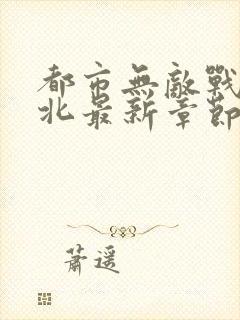 都市無敵戰
北最新章節
蕭遙